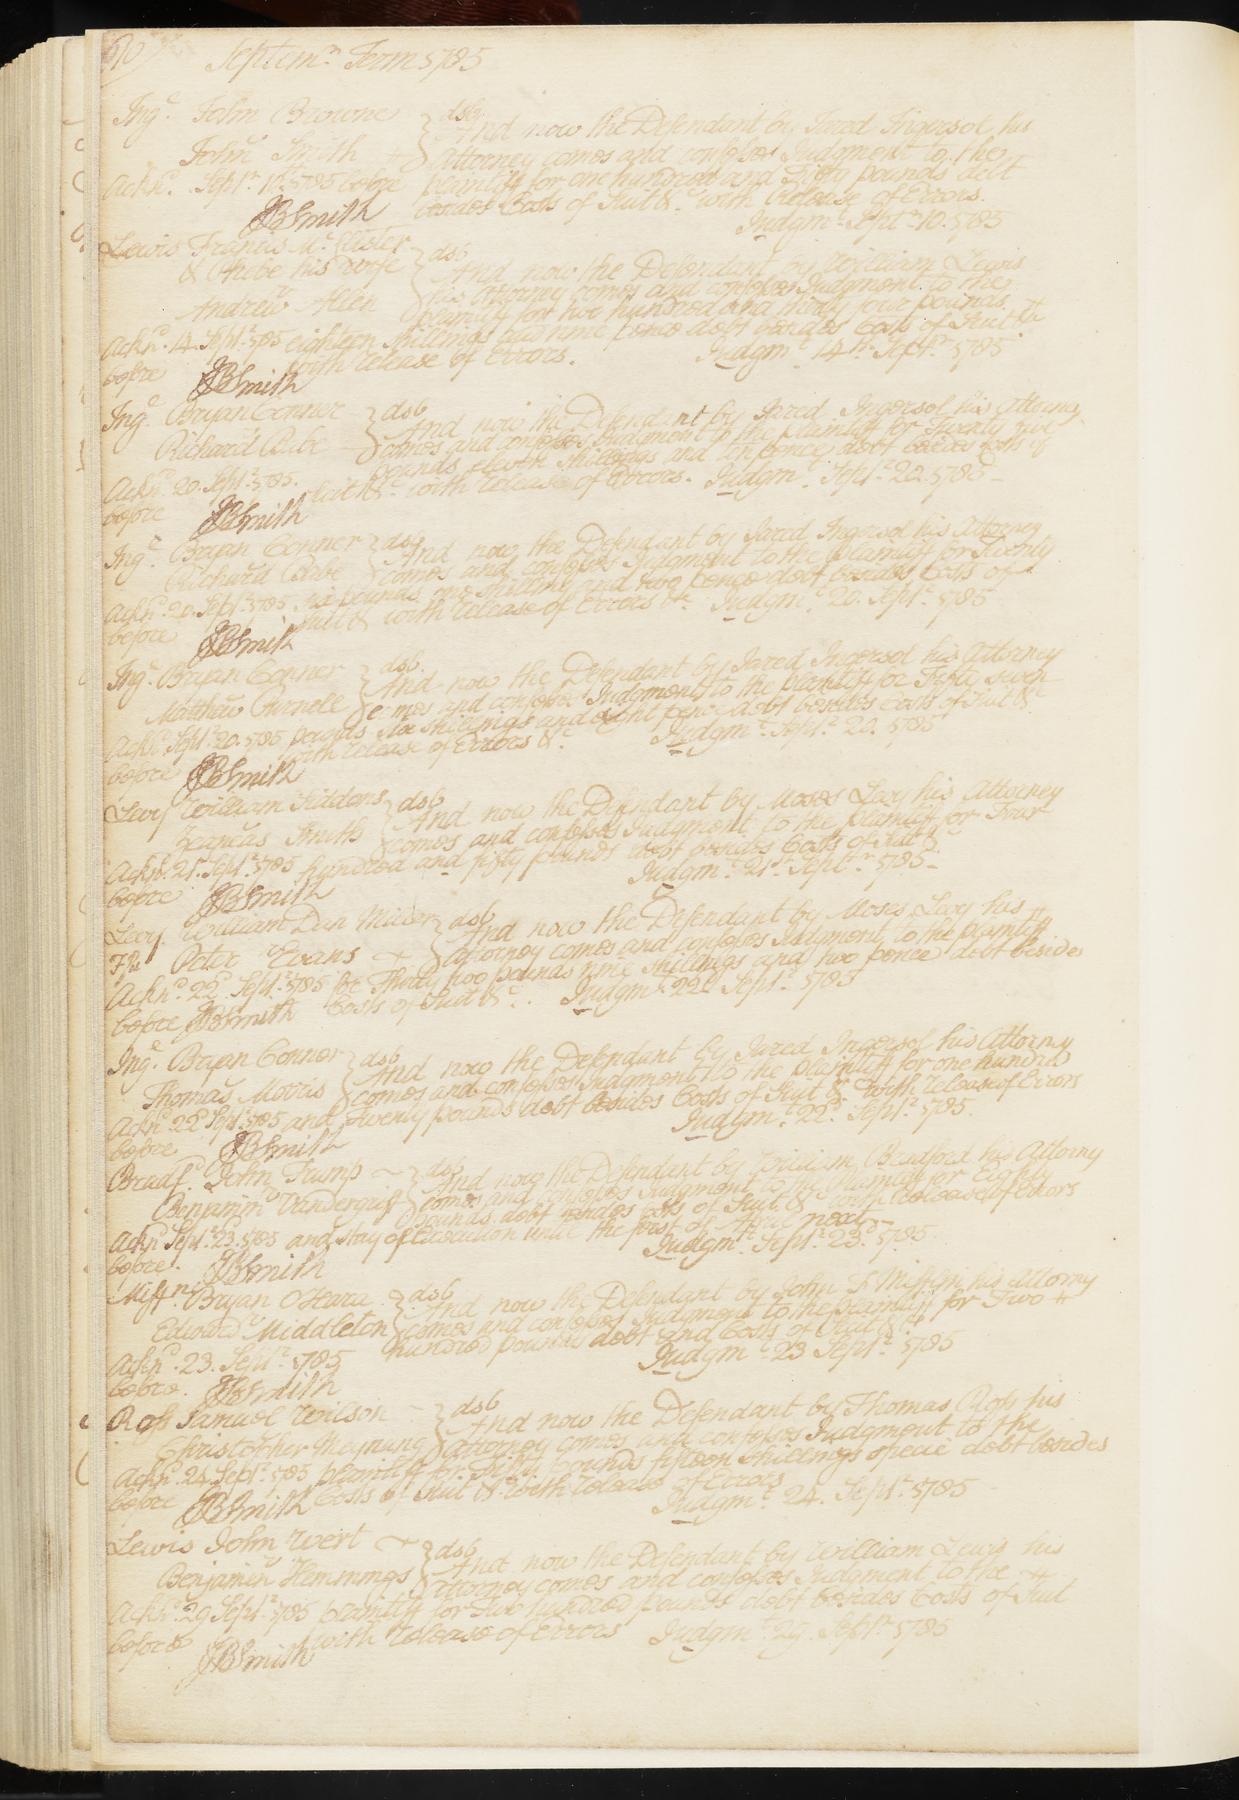 Septemr Term 1785
Ingl John Browne } dsb
And now the Defendant by Jared Ingersol his
John Smith attorney comes and confesses Judgment to the
Acknd Septr 10 1785 before plaintiff for one hundred and fifty pounds debt
besides Costs of Suit &c with Release of Errors.
JBSmith Judgmt Septr 10. 1785
Lewis Francis McClister } dsb
& Phebe his wife And now the Defendant by William Lewis
his Attorney comes and confesses Judgment to the
Andrew Allen plaintiff for two hundred and thirty four pounds
Acknd 14. Septr 1785 eighteen shillings and nine pence debt besides Costs of Suit &c
with release of Errors. Judgmt 14th Septr 1785
before JBSmith
Ingl Bryan Conner } dsb
And now the Defendant by Jared Ingersol his Attorney
Richard Babe comes and confesses Judgment to the plaintiff for Twenty
pounds shillings and ten pence debt besides costs of
Acknd 20. Septr 1785. suit &c with release of Errors. Judgmt Septr 20. 1785
before JBSmith
Ingl Bryan Conner } dsb
And now the Defendant by Jared Ingersol his Attorney
Richard Babe comes and confesses Judgment to the plaintiff for Twenty
Acknd 20. Septr 1785 six pounds one shilling and two pence debt besides Costs of
suit & with release of Errors &c Judgmt 20. Septr 1785
before JBSmith
Ingl Bryan Conner } dsb.
And now the Defendant by Jared Ingersol his Attorney
Matthew comes and confesses Judgment to the plaintiff for Fifty seven
Acknd Septr 20. 1785 pounds six shillings and eight pence debt besides costs of Suit &c
with release of Errors &c Judgmt Septr 20. 1785
before JBSmith
Levy William Siddons } dsb
And now the Defendant by Moses Levy his Attorney
Francis Smith comes and confesses Judgment to the plaintiff for Four
Acknd 21. Septr 1785 hundred and fifty pounds debt besides Costs of Suit &c
Judgmt 21st Septr 1785
before JBSmith
Levy William Dun } dsb
And now the Defendant by Moses Levy his
Peter Evans attorney comes and confesses Judgment to the plaintiff
Acknd 22d Septr 1785 for Thirty two pounds nine shillings and two pence debt besides
Costs of Suit &c. Judgmt 22d Septr 1785
before JBSmith
Ingl Bryan Conner } dsb
And now the Defendant by Jared Ingersol his Attorny
Thomas Morris comes and confesses Judgment to the plaintiff for one hundred
Acknd 22d Septr 1785 and Twenty pounds debt besides Costs of Suit &c with release of Errors
Judgmt 22d Septr 1785.
before JBSmith
Bradfd John Trump } dsb
And now the Defendant by William Bradford his Attorny
Benjamin Vandergrift comes and confesses Judgment to the plaintiff for Eighty
pounds debt besides costs of Suit & with release of Errors
Acknd Septr 23. 1785 and stay of Execution until the first of April next
before. Judgmt Septr 23d 1785.
JBSmith
Miffn Bryan OHara } dsb
And now the Defendant by John F Mifflin his Attorny
Edward Middleton comes and confesses Judgment to the plaintiff for Two
hundred pounds debt and Costs of Suit &c
Acknd 23. Septr 1785 Judgmt 23 Septr 1785
before. JBSmith
Ross Samuel Wilson } dsb
And now the Defendant by Thomas Ross his
Christopher attorney comes and confesses Judgment to the
Acknd 24. Septr 1785 plaintiff for fifty pounds fifteen shillings specie debt besides
Costs of Suit &c with release of Errors
before JBSmith Judgmt 24. Septr 1785
Lewis John Wert } dsb
And now the Defendant by William Lewis his
Benjamin Hemmings attorney comes and confesses Judgment to the
Acknd 29 Septr 1785 plaintiff for Two hundred pounds debt besides Costs of Suit
with release of Errors Judgmt 29. Septr 1785
before JBSmith